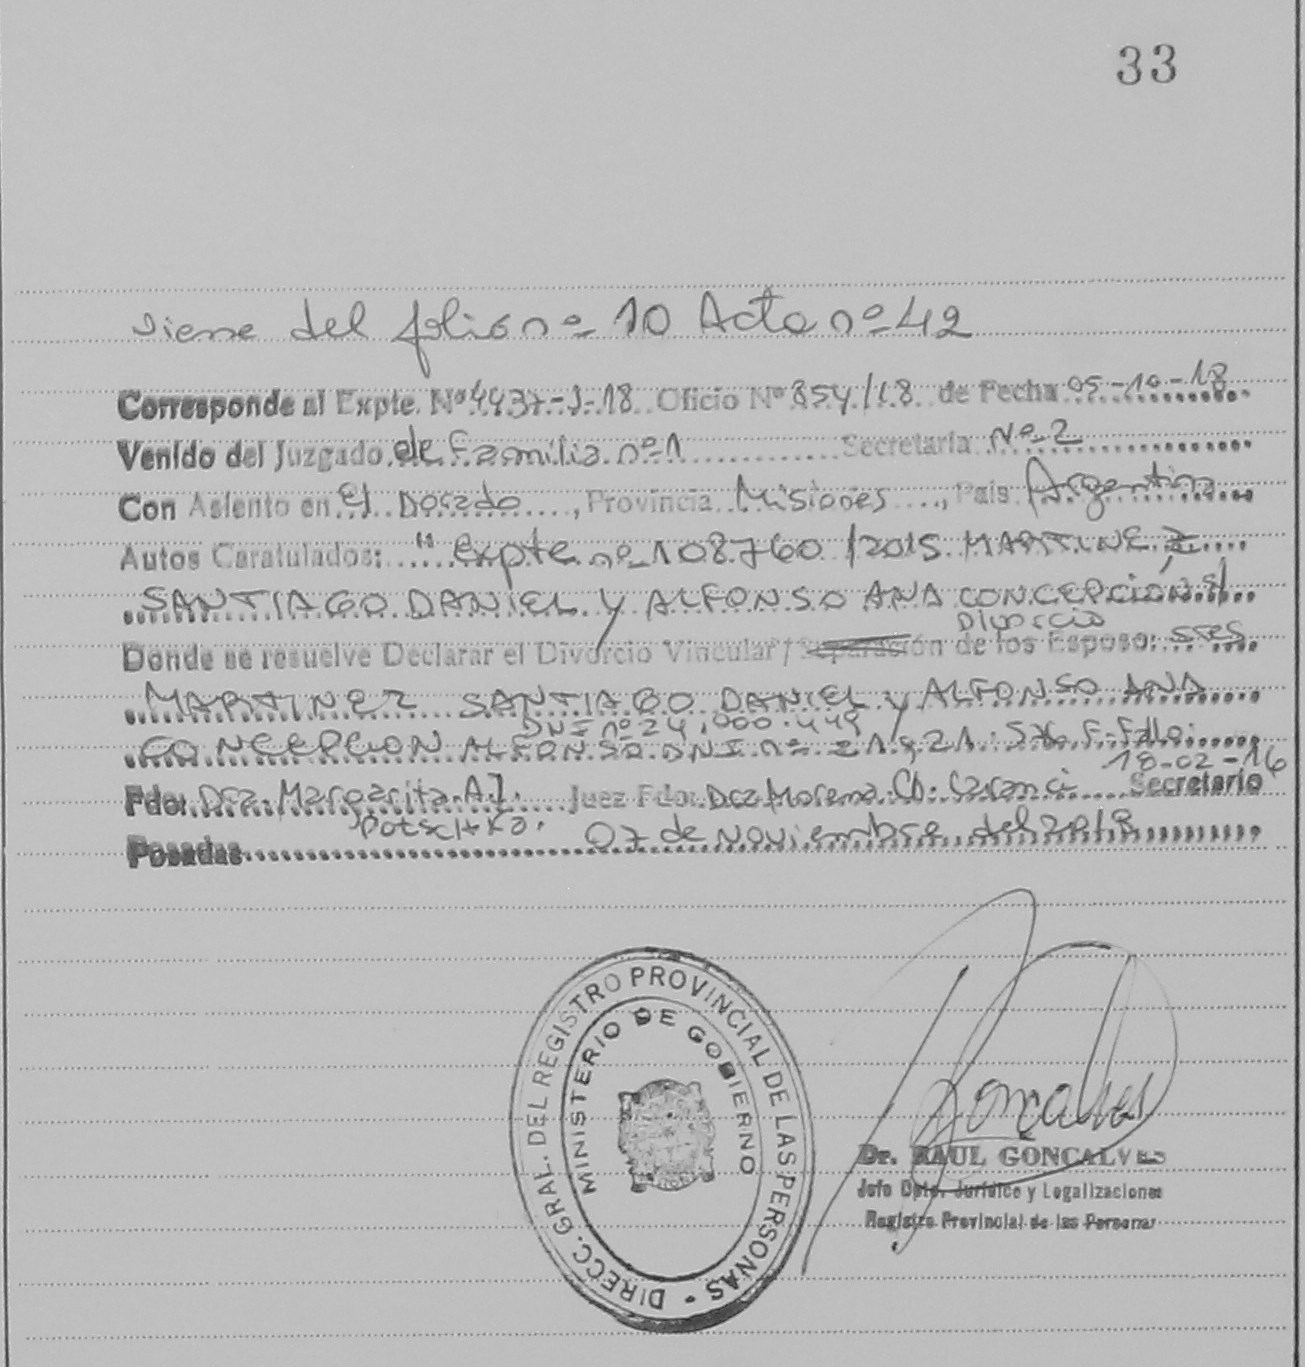 33
Viene del folio nº 10 Acta nº 42
Corresponde al Expte. Nº 4437-J-18 Oficio Nº 854/18 de Fecha 05-10-18
Venido del Juzgado de Familia nº 1 Secretaría Nº 2
Con Asiento en El Dorado, Provincia Misiones, País Argentina
Autos Caratulados: "Expte nº 108760/2015 MARTINEZ
SANTIAGO DANIEL y ALFONSO ANA CONCEPCIÓN s/
Divorcio
Donde se resuelve Declarar el Divorcio Vincular / Separación de los Esposo: sres.
MARTINEZ SANTIAGO DANIEL y ALFONSO ANA
DNI nº 24.000.449
CONCEPCION ALFONSO DNI nº F-Fallo:
18-02-16
Fdo: Dra. Margarita A. Juez Fdo: Dra Morena Secretario
Posadas 07 de Noviembre del 2018
DIRECC. GRAL. DEL REGISTRO PROVINCIAL DE LAS PERSONAS -
MINISTERIO DE GOBIERNO
Goncalves
Dr. RAUL GONCALVES
Jefe Dpto. Jurídico y Legalizaciones
Registro Provincial de las Personas